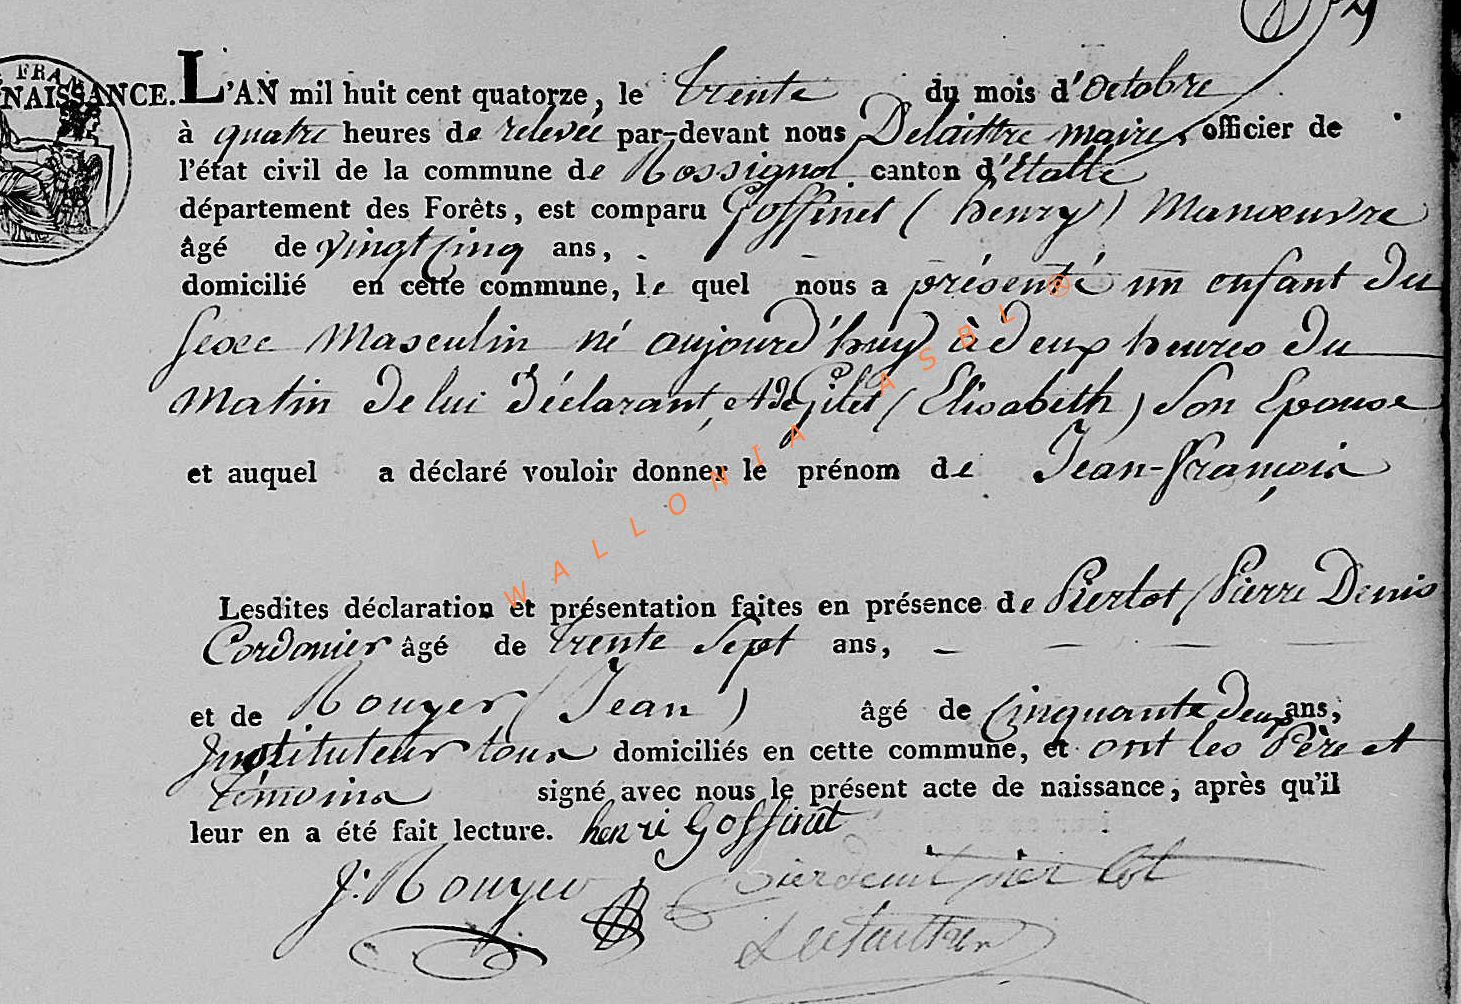 FRAN
NAISSANCE. L'AN mil huit cent quatorze, le trente du mois d'octobre
à quatre heures de relevée par-devant nous Delaittre maire, officier de
l'état civil de la commune de Rossignol canton d'Etalle
département des Forêts, est comparu Goffinet (henry) Manœuvre
âgé de vingt Cinq ans,
domicilié en cette commune, le quel nous a présenté un enfant du
sexe Masculin né aujourd'huy à deux heures du
Matin de lui Déclarant, et de Gilet (Elisabeth) Son Epouse
et auquel a déclaré vouloir donner le prénom de Jean-François
WALLONIA ASBL ®
Lesdites déclaration et présentation faites en présence de Pierlot (Pierre Denis
Cordonier âgé de trente Sept ans,
et de Rouyer (Jean) âgé de Cinquante Deux ans,
Instituteur tous domiciliés en cette commune, et ont les Père et
témoins signé avec nous le présent acte de naissance, après qu'il
leur en a été fait lecture. henri Goffinet
J. Rouyer pierlot
Delaittre